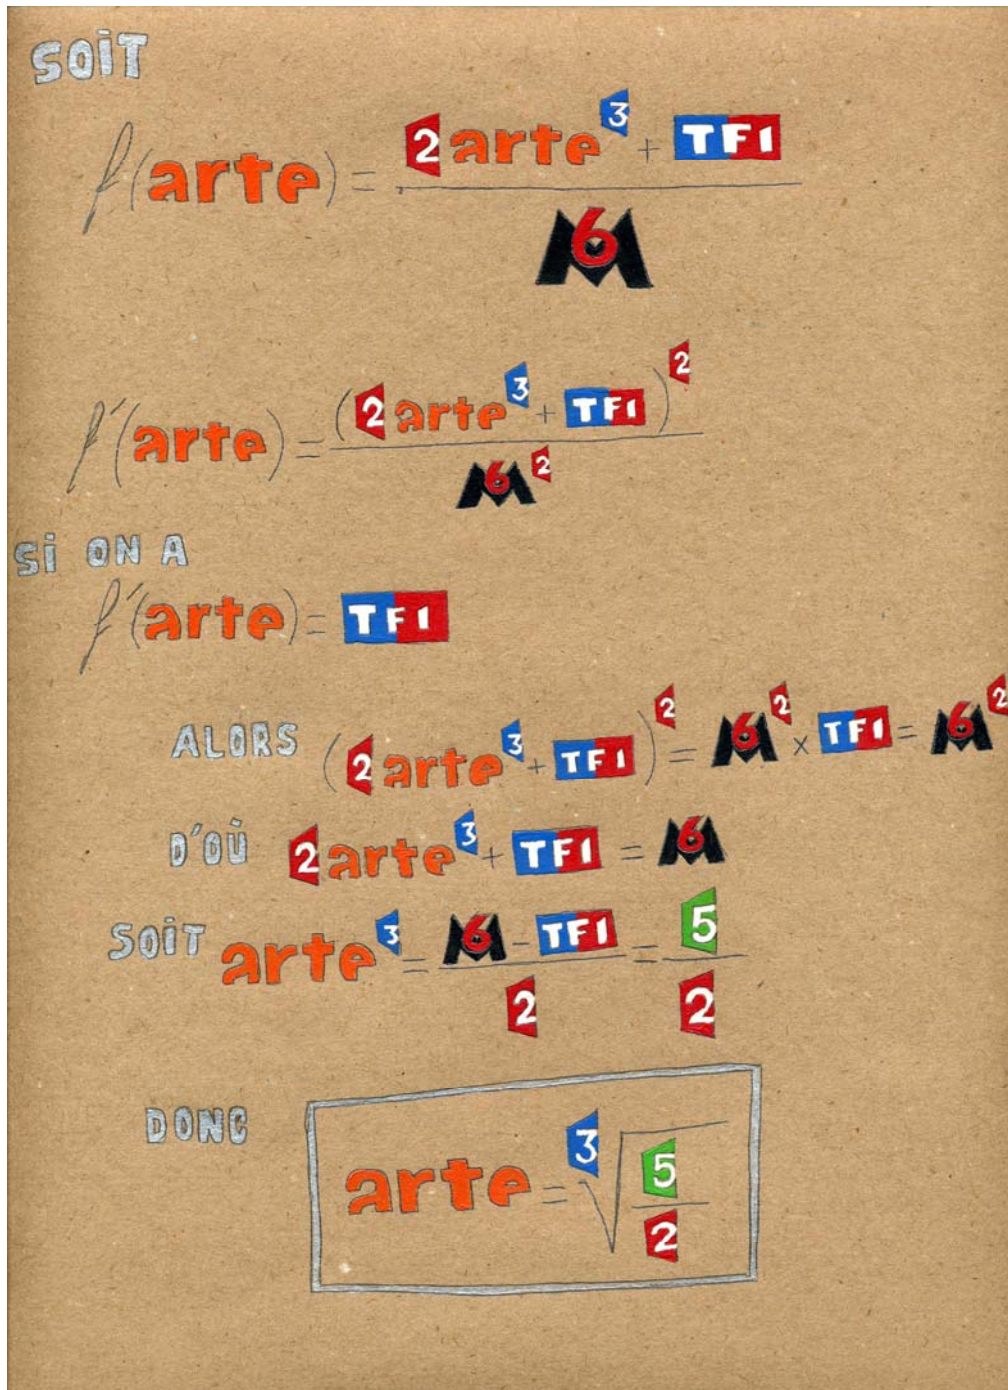 SOIT
f(arte) = (2 arte³ + TF1) / M6
f'(arte) = (2 arte³ + TF1)² / M6²
Si ON A
f'(arte) = TF1
ALORS (2 arte³ + TF1)² = M6² × TF1 = M6²
D'OÙ 2 arte³ + TF1 = M6
SOIT arte³ = (M6 - TF1) / 2 = 5 / 2
DONC
arte = ³√(5 / 2)